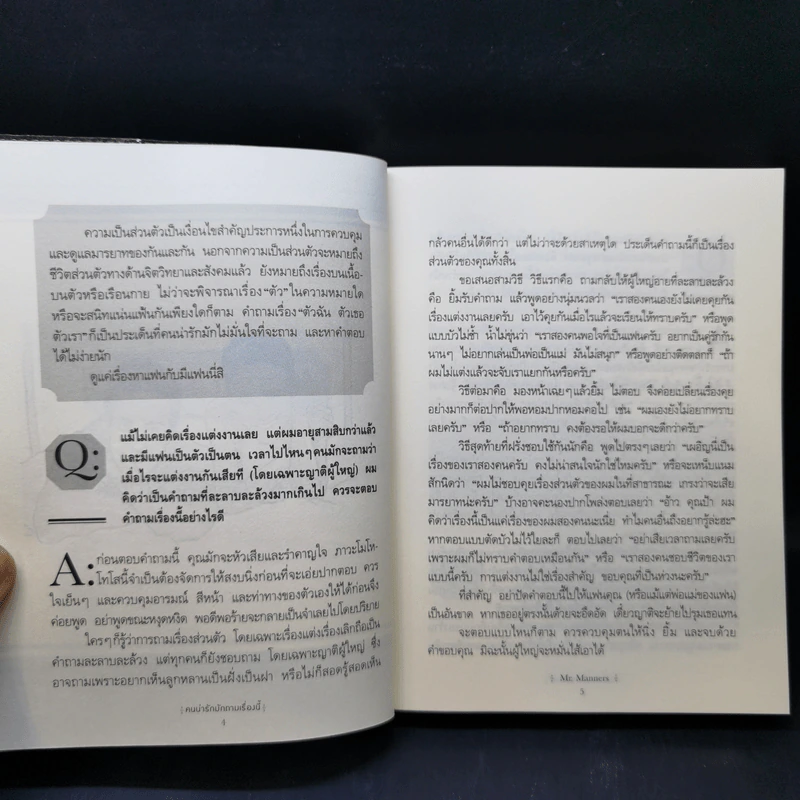 ความเป็นส่วนตัวเป็นเงื่อนไขสำคัญประการหนึ่งในการควบคุม
และดูแลมารยาทของกันและกัน นอกจากความเป็นส่วนตัวจะหมายถึง
ชีวิตส่วนตัวทางด้านจิตวิทยาและสังคมแล้ว ยังหมายถึงเรื่องบนเนื้อ-
บนตัวหรือเรือนกาย ไม่ว่าจะพิจารณาเรื่อง “ตัว” ในความหมายใด
หรือจะสนิทแน่นแฟ้นกันเพียงใดก็ตาม คำถามเรื่อง “ตัวฉัน ตัวเธอ
ตัวเรา” ก็เป็นประเด็นที่คนน่ารักมักไม่มั่นใจที่จะถาม และหาคำตอบ
ได้ไม่ง่ายนัก
ดูแค่เรื่องหาแฟนกับมีแฟนนี่สิ
Q:
แม้ไม่เคยคิดเรื่องแต่งงานเลย แต่ผมอายุสามสิบกว่าแล้ว
และมีแฟนเป็นตัวเป็นตน เวลาไปไหนๆ คนมักจะถามว่า
เมื่อไรจะแต่งงานกันเสียที (โดยเฉพาะญาติผู้ใหญ่) ผม
คิดว่าเป็นคำถามที่ละลาบละล้วงมากเกินไป ควรจะตอบ
คำถามเรื่องนี้อย่างไรดี
A: ก่อนตอบคำถามนี้ คุณมักจะหัวเสียและรำคาญใจ ภาวะโมโห-
โทโสนี้จำเป็นต้องจัดการให้สงบนิ่งก่อนที่จะเอ่ยปากตอบ ควร
ใจเย็นๆ และควบคุมอารมณ์ สีหน้า และท่าทางของตัวเองให้ได้ก่อนจึง
ค่อยพูด อย่าพูดขณะหงุดหงิด พอดีพอร้ายจะกลายเป็นจำเลยไปโดยปริยาย
ใครๆ ก็รู้ว่าการถามเรื่องส่วนตัว โดยเฉพาะเรื่องแต่งเรื่องเลิกถือเป็น
คำถามละลาบละล้วง แต่ทุกคนก็ยังชอบถาม โดยเฉพาะญาติผู้ใหญ่ ซึ่ง
อาจถามเพราะอยากเห็นลูกหลานเป็นฝั่งเป็นฝา หรือไม่ก็สอดรู้สอดเห็น
| คนน่ารักมักถามเรื่องนี้ |
4
กลัวคนอื่นได้ดีกว่า แต่ไม่ว่าจะด้วยสาเหตุใด ประเด็นคำถามนี้ก็เป็นเรื่อง
ส่วนตัวของคุณทั้งสิ้น
ขอเสนอสามวิธี วิธีแรกคือ ถามกลับให้ผู้ใหญ่อายที่ละลาบละล้วง
คือ ยิ้มรับคำถาม แล้วพูดอย่างนุ่มนวลว่า “เราสองคนเองยังไม่เคยคุยกัน
เรื่องแต่งงานเลยครับ เอาไว้คุยกันเมื่อไรแล้วจะเรียนให้ทราบครับ” หรือพูด
แบบบัวไม่ช้ำ น้ำไม่ขุ่นว่า “เราสองคนพอใจที่เป็นแฟนครับ อยากเป็นคู่รักกัน
นานๆ ไม่อยากเล่นเป็นพ่อเป็นแม่ มันไม่สนุก” หรือพูดอย่างติดตลกก็ “ถ้า
ผมไม่แต่งแล้วจะจับเราแยกกันหรือครับ”
วิธีต่อมาคือ มองหน้าเฉยๆ แล้วยิ้ม ไม่ตอบ จึงค่อยเปลี่ยนเรื่องคุย
อย่างมากก็ต่อปากให้พอหอมปากหอมคอไป เช่น “ผมเองยังไม่อยากทราบ
เลยครับ” หรือ “ถ้าอยากทราบ คงต้องรอให้ผมบอกจะดีกว่าครับ”
วิธีสุดท้ายที่ฝรั่งชอบใช้กันนักคือ พูดไปตรงๆ เลยว่า “เผอิญนี่เป็น
เรื่องของเราสองคนครับ คงไม่น่าสนใจนักใช่ไหมครับ” หรือจะเหน็บแนม
สักนิดว่า “ผมไม่ชอบคุยเรื่องส่วนตัวของผมในที่สาธารณะ เกรงว่าจะเสีย
มารยาทน่ะครับ” บ้างอาจจะนอกปากโพล่งตอบเลยว่า “อ้าว คุณป้า ผม
คิดว่าเรื่องนี้เป็นแค่เรื่องของผมสองคนนะเนี่ย ทำไมคนอื่นถึงอยากรู้ล่ะฮะ”
หากตอบแบบตัดบัวไม่ไว้ใยละก็ ตอบไปเลยว่า “อย่าเสียเวลาถามเลยครับ
เพราะผมก็ไม่ทราบคำตอบเหมือนกัน” หรือ “เราสองคนชอบชีวิตของเรา
แบบนี้ครับ การแต่งงานไม่ใช่เรื่องสำคัญ ขอบคุณที่เป็นห่วงนะครับ”
ที่สำคัญ อย่าปัดคำถามนี้ไปให้แฟนคุณ (หรือแม้แต่พ่อแม่ของแฟน)
เป็นอันขาด หากเธออยู่ตรงนั้นด้วยจะอึดอัด เดี๋ยวญาติจะย้ายไปรุมเธอแทน
จะตอบแบบไหนก็ตาม ควรควบคุมตนให้นิ่ง ยิ้ม และจบด้วย
คำขอบคุณ มิฉะนั้นผู้ใหญ่จะหมั่นไส้เอาได้
| Mr. Manners |
5